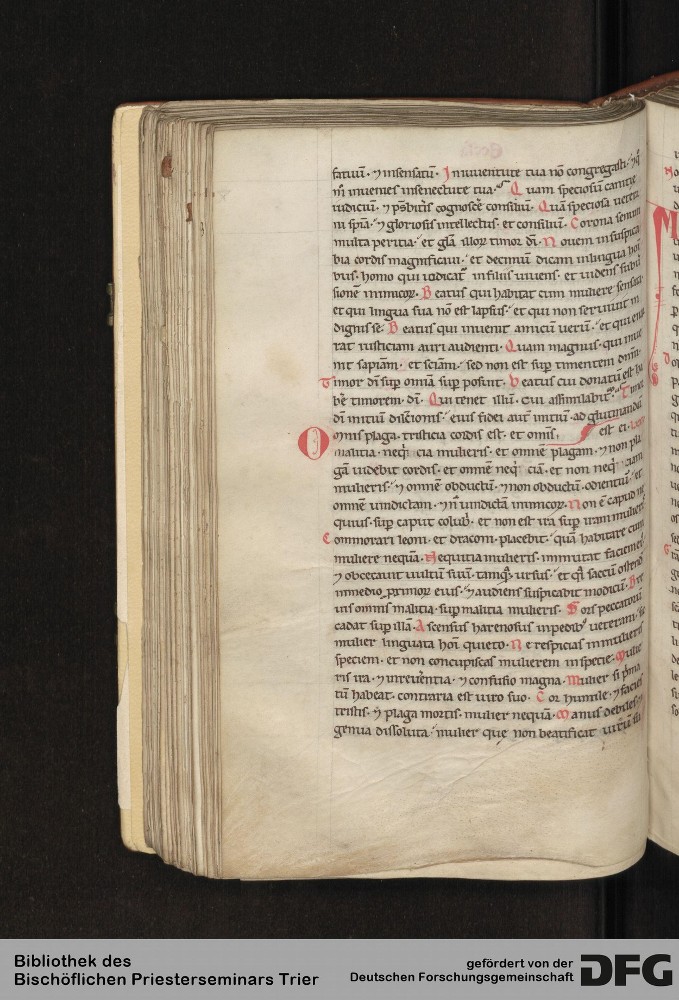 fatuū. ⁊ insensatū. In iuventute tua nō congregasti. ⁊ q̄
m̄ invenies insenectute tua. Quam speciosū canitie
iudiciū. ⁊ p̄sbiťis cognoscē consiliū. Quā speciosa veteri
in sp̄ia. ⁊ gl̄oriosis intellectus. et consiliū. Corona senum
multa peritia. et gl̄a illoꝝ timor dī. Nouem insuspica
bia cordis magnificaui. et decimū dicam inlingua hoī
bus. homo qui iocūdat̄ infiliis viuens. et uidens sub
sionē inimicoꝝ. Beatus qui habitat cum muliere sensata
et qui lingua sua nō est lapsus. et qui non seruiuit in
dignis se. Beatus qui inuenit amicū uerū. et qui ena
rat iusticiam auri audienti. Quam magnus. qui inue
nit sapiam̄. et sciam̄. sed non est sup timentem dn̄m.
Timor dī sup omīa sup posuit. Beatus cui donatū est ha
bē timorem dī. Qui tenet illū. cui assimilabit̄. Timor
dī initiū dilēcionis. eius fidei aut̄ initiū. adglutinandū
Omnis plaga. tristicia cordis est. et omīs est ei.
malitia. neq̄ cia mulieris. et omnē plagam. ⁊ non pla
gā uidebit cordis. et omnē neq̄ ciā. et non neq̄ ciam
mulieris. ⁊ omnē obductū. ⁊ non obductū. odientiū. et
omnē uindictam. ⁊ n̄ uindictā inimicoꝝ. Non ē caput ne
quius. sup caput colubī. et non est ira sup iram mulieris
Commorari leoni. et draconi. placebit. quā habitare cum
muliere nequā. Nequitia mulieris. inmutat faciem ei.
⁊ obcecauit uultū suū. tamq̄ ursus. et q̄i saccū ostend
inmedio primoꝝ eius. ⁊ audiens suspirabit modicū. Bre
uis omnis malitia. sup malitia mulieris. Sors peccatorū
cadat sup illā. Ascensus harenosus inpedibꝫ ueterani. sic
mulier linguata hoī quieto. Ne respicias inmulieris
speciem. et non concupiscas mulierem inspecie. Mulie
ris ira. ⁊ inreuentia. ⁊ confusio magna. Mulier si p̄ma
tū habeat. contraria est uiro suo. Cor humile. ⁊ facies
tristis. ⁊ plaga mortis. mulier nequā. Manus debiles. ⁊
genua dissoluta. mulier que non beatificat uirū
Bibliothek des
Bischöflichen Priesterseminars Trier
gefördert von der
Deutschen Forschungsgemeinschaft
DFG